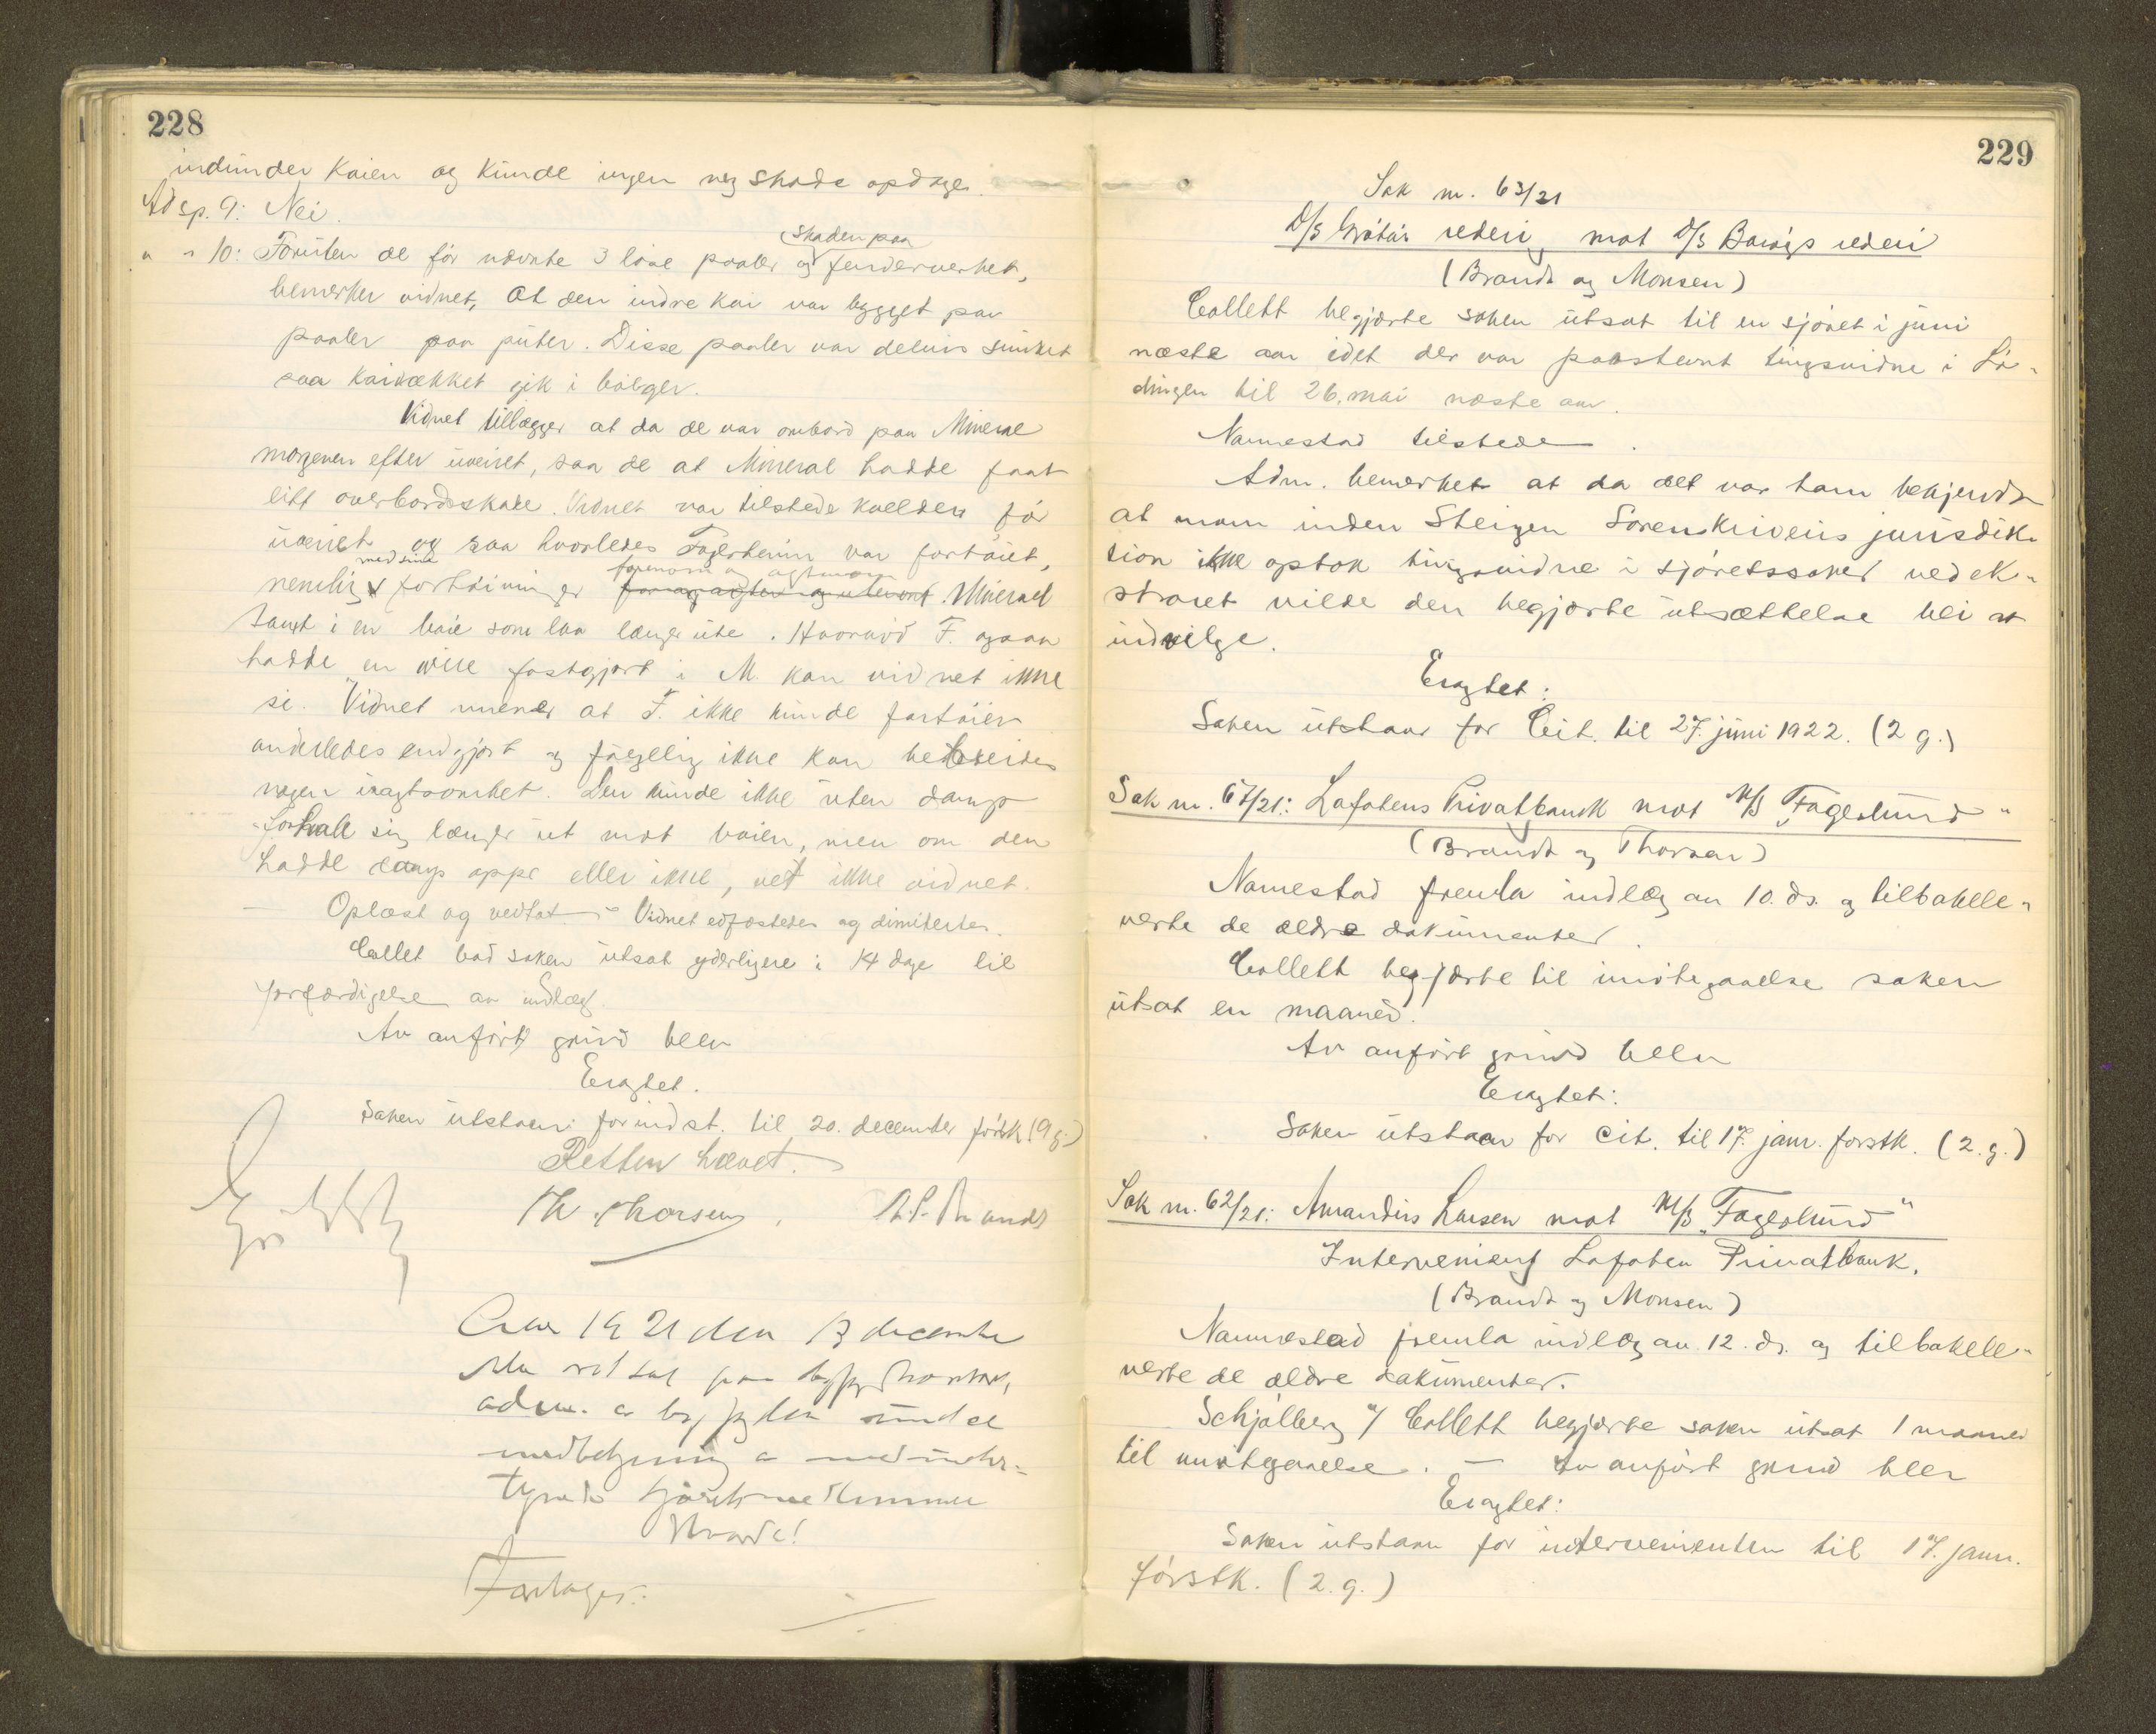 228
indunder kaien og kunde ingen ny skade opdage.
Ad sp. 9: Nei.
" " 10: Foruten de før nævnte 3 løse paaler og skaden paa fenderverket,
bemerker vidnet, at den indre kai var bygget paa
paaler paa puter. Disse paaler var delvis sunket
saa kaidækket gik i bølger.
Vidnet tillægger at da de var ombord paa Mineral
morgenen efter uveiret, saa de at Mineral hadde faat
litt overbordskade. Vidnet var tilstede kvelden før
uveiret og saa hvorledes Fagerheim var fortøiet,
nemlig med sine fortøininger forenom og agtenom for og agter og utenom. Mineral
samt i en bøie som laa længer ute. Hvorvid F. ogsaa
hadde en wire fastgjort i M. kan vidnet ikke
si. Vidnet mener at F. ikke kunde fortøies
anderledes end gjort og følgelig ikke kan bebreides
nogen uagtsomhet. Den kunde ikke uten damp
forhale sig længer ut mot bøien, men om den
hadde damp oppe eller ikke, vet ikke vidnet.
Oplæst og vedtat – Vidnet edfæstedes og dimitertes.
Collet bad saken utsat yderligere i 14 dage til
forfærdigelse av indlæg.
Av anført grund blev
Eragtet.
Saken utstaar for indst. til 20. december førstk. (9 g.)
Retten hævet.
Th. Thorsen. R.P. Brandt
Aar 1921 den 13 december
blev ret sat paa byfogdkontoret,
adm. av byfogden under
medbetjening av medunder-
tegnede sjøretsmedlemmer
Brandt
Foretages:
229
Sak nr. 63/21
D/S Grøtøs rederi mot D/S Barøys rederi
(Brandt og Monsen)
Collett begjærte saken utsat til en sjøret i juni
næste aar idet der var paastevnt tingsvidne i Lø-
dingen til 26. mai næste aar.
Nannestad tilstede.
Adm. bemerket at da det var ham bekjendt
at man inden Steigen Sorenskriveris jurisdik-
tion ikke optok tingsvidne i sjøretssaker ved ek-
straret vilde den begjærte utsættelse bli at
indvilge.
Eragtet:
Saken utstaar for Cit. til 27. juni 1922. (2 g.)
Sak nr. 67/21: Lofotens Privatbank mot M/S "Fagerlund"
(Brandt og Thorsen)
Nannestad fremla indlæg av 10. ds. og tilbakele-
verte de ældre dokumenter.
Collett begjærte til imøtegaaelse saken
utsat en maaned.
Av anført grund blev
Eragtet:
Saken utstaar for cit. til 17. janr. førstk. (2. g.)
Sak nr. 62/21: Amandus Larsen mot M/S "Fagerlund"
Intervenient Lofoten Privatbank.
(Brandt og Monsen)
Nannestad fremla indlæg av 12. ds. og tilbakele-
verte de ældre dokumenter.
Schjølberg f/ Collett begjærte saken utsat 1 maaned
til imøtegaaelse. – Av anført grund blev
Eragtet:
Saken utstaar for intervenienten til 17. janr.
førstk. (2. g.)